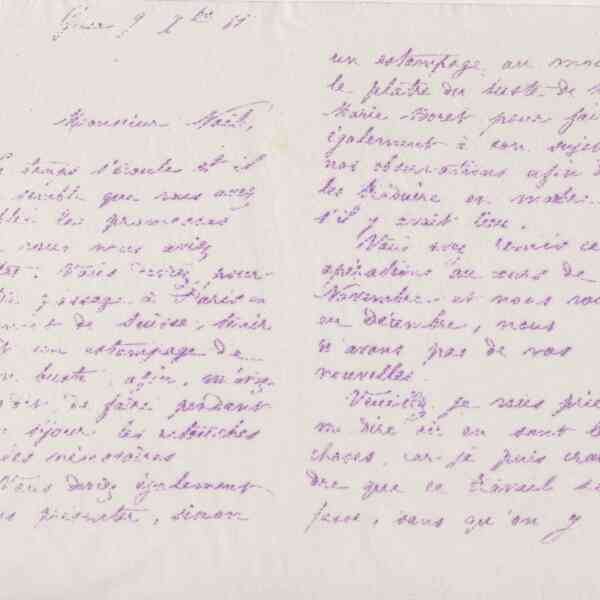 Guise 9 Xbre 81
Monsieur Noël,
temps s'écoule et il
semble que vous avez
les promesses
vous nous aviez
Vous aviez, pour
passage à Paris en
de Suisse, tenir
un estampage de
buste afin, m'avez
de faire pendant
séjour les retouches
nécessaires
Vous deviez également
présenter, sinon
un estampage, au
le plâtre du buste de
Marie Moret pour
également à son sujet
nos observations afin
les traduire en
s'il y avait lieu.
Vous avez remis ces
opérations au cours de
Novembre et nous
en Décembre, nous
n'avons pas de vos
nouvelles.
Veuillez, je vous prie
me dire où en sont les
choses, car je puis
dre que ce travail se
fasse, sans qu'on y